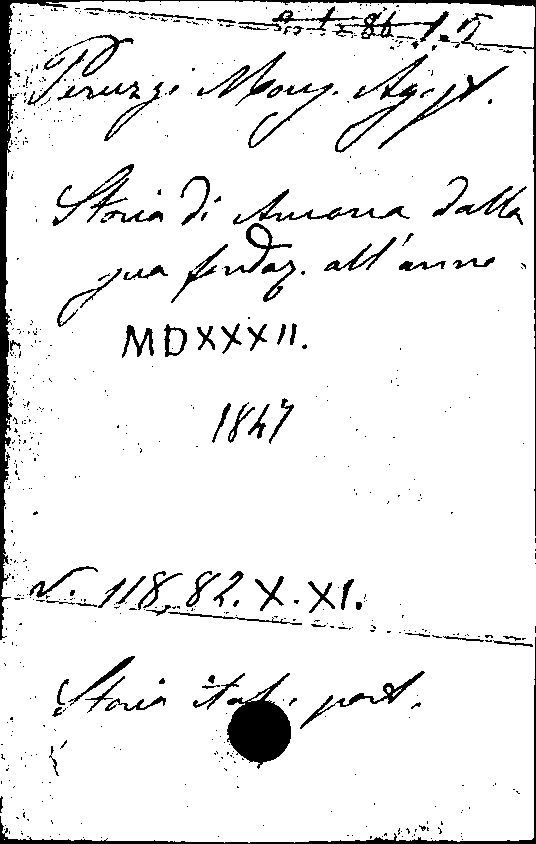 1.5
Peruzzi Mons. Ag.
Storia di Ancona dalla
sua fondaz. all'anno
MDXXXII.
1847
V. 118,82. X. XI.
Storia ital. part.